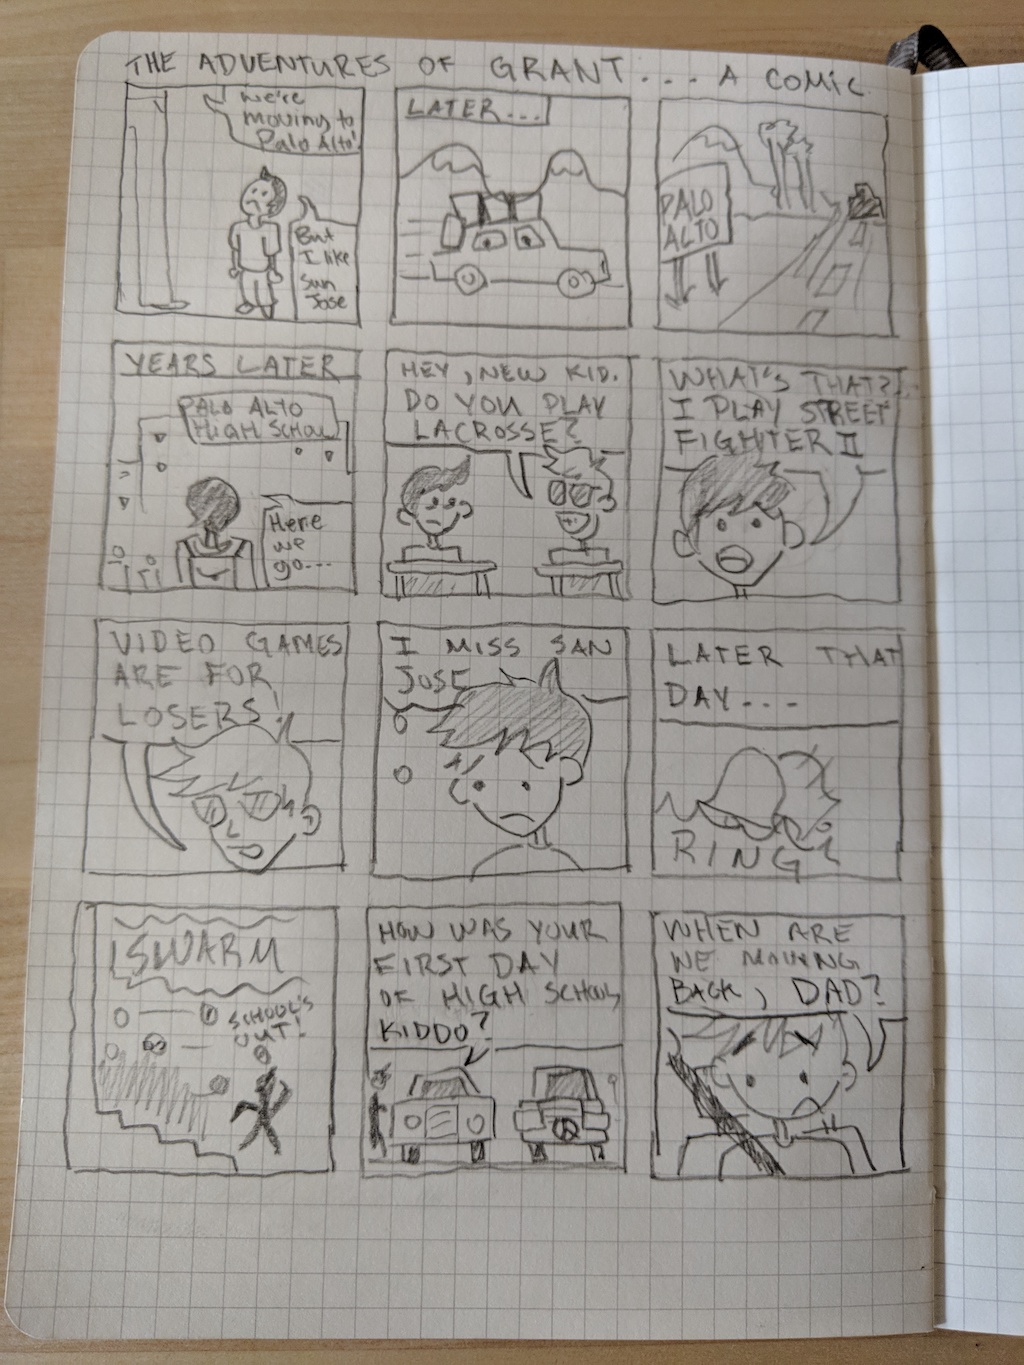 THE ADVENTURES OF GRANT.... A COMIC
We're
moving to
Palo Alto!
But
I like
San
Jose
LATER...
PALO
ALTO
YEARS LATER
PALO ALTO
HIGH SCHOOL
Here
we
go...
HEY, NEW KID.
DO YOU PLAY
LACROSSE?
WHAT'S THAT?
I PLAY STREET
FIGHTER II
VIDEO GAMES
ARE FOR
LOSERS!
I MISS SAN
JOSE
LATER THAT
DAY...
RING
SWARM
SCHOOL'S
OUT!
HOW WAS YOUR
FIRST DAY
OF HIGH SCHOOL
KIDDO?
WHEN ARE
WE MOVING
BACK, DAD?